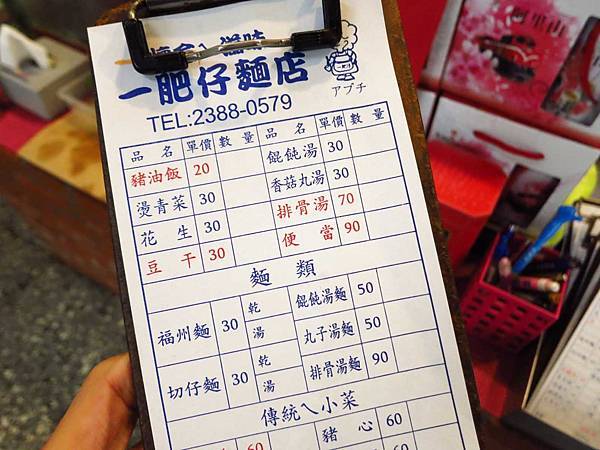 ㄟ滋味
一肥仔麵店
アプチ
TEL:2388-0579
品名 單價 數量 品名 單價 數量
豬油飯 20 餛飩湯 30
燙青菜 30 香菇丸湯 30
花生 30 排骨湯 70
豆干 30 便當 90
麵類
福州麵 30 乾 湯 餛飩湯麵 50
丸子湯麵 50
切仔麵 30 乾 湯 排骨湯麵 90
傳統ㄟ小菜
60 豬心 60
60
阿里山